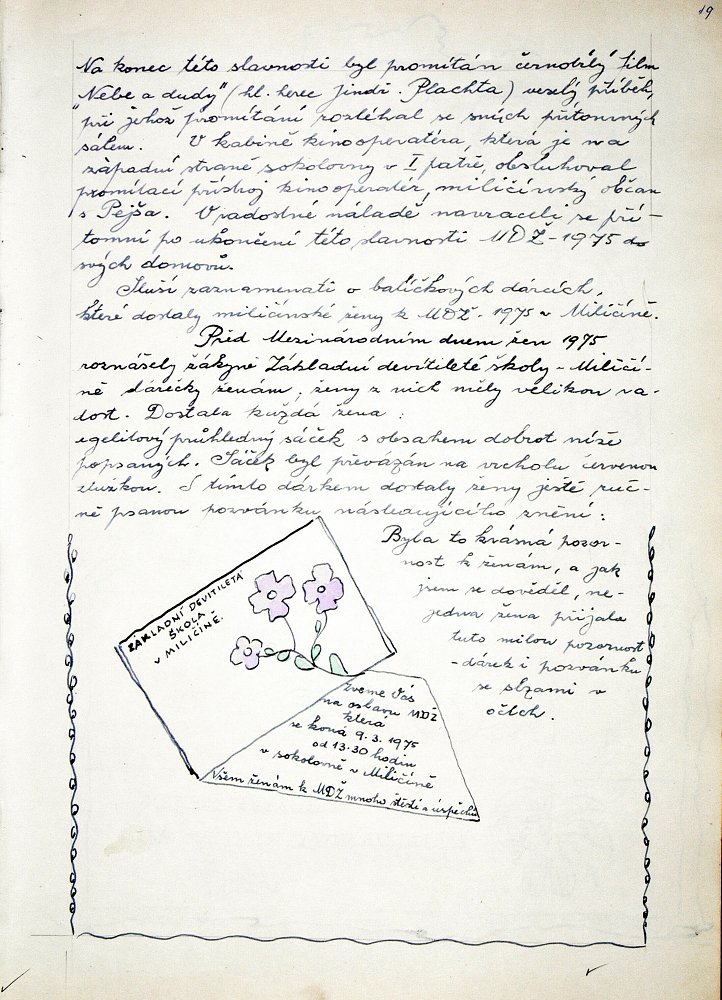 19
Na konec této slavnosti byl promítán černobílý film
"Nebe a dudy" (hl. herec Jindř. Plachta) veselý příběh,
při jehož promítání rozléhal se smích přítomných
sálem. V kabině kinooperatéra, která je na
západní straně sokolovny v I patře, obsluhoval
promítací přístroj kinooperatér, miličínský občan
s Pejša. V radostné náladě navraceli se pří-
tomní po ukončení této slavnosti MDŽ - 1975 do
svých domovů.
Sluší zaznamenati o balíčkových dárcích,
které dostaly miličínské ženy k MDŽ - 1975 v Miličíně.
Před Mezinárodním dnem žen 1975
roznášely žákyně Základní devítileté školy - Miličí-
ně dárečky ženám, ženy z nich měly velikou ra-
dost. Dostala každá žena :
egelitový průhledný sáček s obsahem dobrot níže
popsaných. Sáček byl převázán na vrcholu červenou
stužkou. S tímto dárkem dostaly ženy ještě ruč-
ně psanou pozvánku následujícího znění :
Byla to krásná pozor-
nost k ženám, a jak
jsem se dověděl, ne-
jedna žena přijala
tuto milou pozornost
- dárek i pozvánku
se slzami v
očích.
ZÁKLADNÍ DEVÍTILETÁ
ŠKOLA
v MILIČÍNĚ.
Zveme Vás
na oslavu MDŽ
která
se koná 9. 3. 1975
od 13.30 hodin
v sokolovně v Miličíně
Všem ženám k MDŽ mnoho štěstí a úspěchů